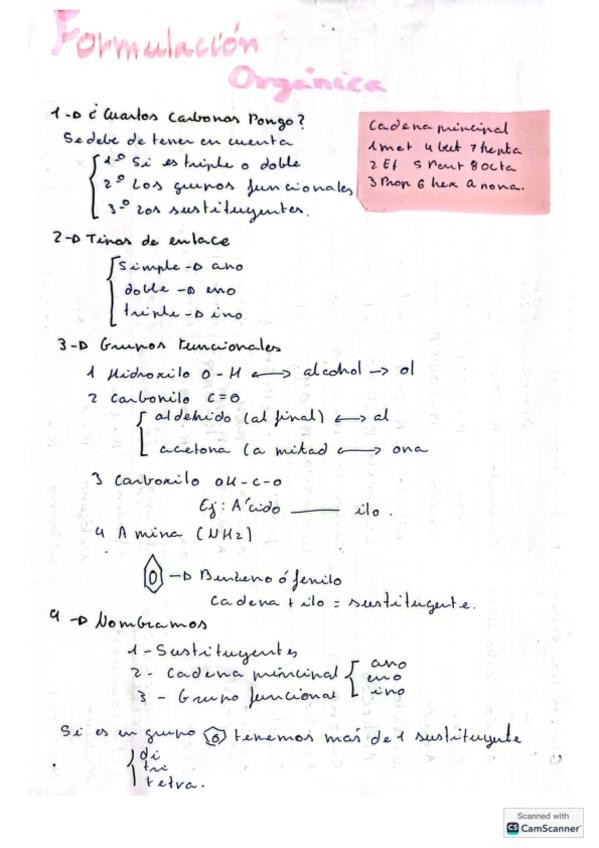 Formulación
Orgánica
1-D ¿Cuantos Carbonos Pongo?
Se debe de tener en cuenta
1º Si es triple o doble
2º Los grupos funcionales
3º Los sustituyentes.
Cadena principal
1 met 4 but 7 hepta
2 Et 5 Pent 8 octa
3 Prop 6 hex 9 nona.
2-D Tipos de enlace
Simple -D ano
doble -D eno
triple -D ino
3-D Grupos Funcionales
1 Hidroxilo O-H ⟷ alcohol → ol
2 Carbonilo C=O
aldehido (al final) ⟷ al
acetona (a mitad ⟷ ona
3 Carboxilo OH-C-O
Ej: Ácido ___ ilo.
4 Amina (NH2)
-D Benzeno ó fenilo
cadena + ilo = sustituyente.
4-D Nombramos
1-Sustituyentes
2- Cadena principal
3 - Grupo funcional
ano
eno
ino
Si es un grupo tenemos más de 1 sustituyente
di
tri
tetra.
Scanned with
CS CamScanner